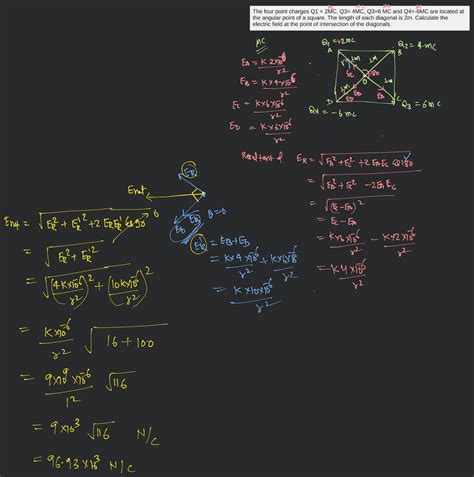 The four point charges Q1 = 2MC, Q3= 4MC, Q3=6 MC and Q4=-6MC are located at
the angular point of a square. The length of each diagonal is 2m. Calculate the
electric field at the point of intersection of the diagonals.
MC
E_A = K2×10^-6 / r^2
E_B = K×4×10^-6 / r^2
E_C = K×6×10^-6 / r^2
E_D = K×6×10^-6 / r^2
Q1 = 2MC
A
B
Q2 = 4mC
1M
1M
E_C
180
O
E_D
E_B
E_A
D
C
Q3 = 6mC
Q4 = -6mC
Resultant of
E_R = √(E_A^2+E_C^2+2E_AE_C Cos180)
= √(E_A^2+E_C^2 - 2E_AE_C)
= √(E_C-E_A)^2
= E_C - E_A
= K×6×10^-6 / r^2 - K×2×10^-6 / r^2
= K4×10^-6 / r^2
E_R
E_net
E_B
E_D
θ=0
E_R' = E_B+E_D
= K×4×10^-6 / r^2 + K×6×10^-6 / r^2
= K×10×10^-6 / r^2
E_net = √(E_R^2 + E_R'^2 + 2E_RE_R' Cos90) 0
= √(E_R^2 + E_R'^2)
= √((4K×10^-6 / r^2)^2 + (10K×10^-6 / r^2)^2)
= K×10^-6 / r^2 √(16+100)
= 9×10^9×10^-6 / 1^2 √116
= 9×10^3 √116 N/C
= 96.93×10^3 N/C